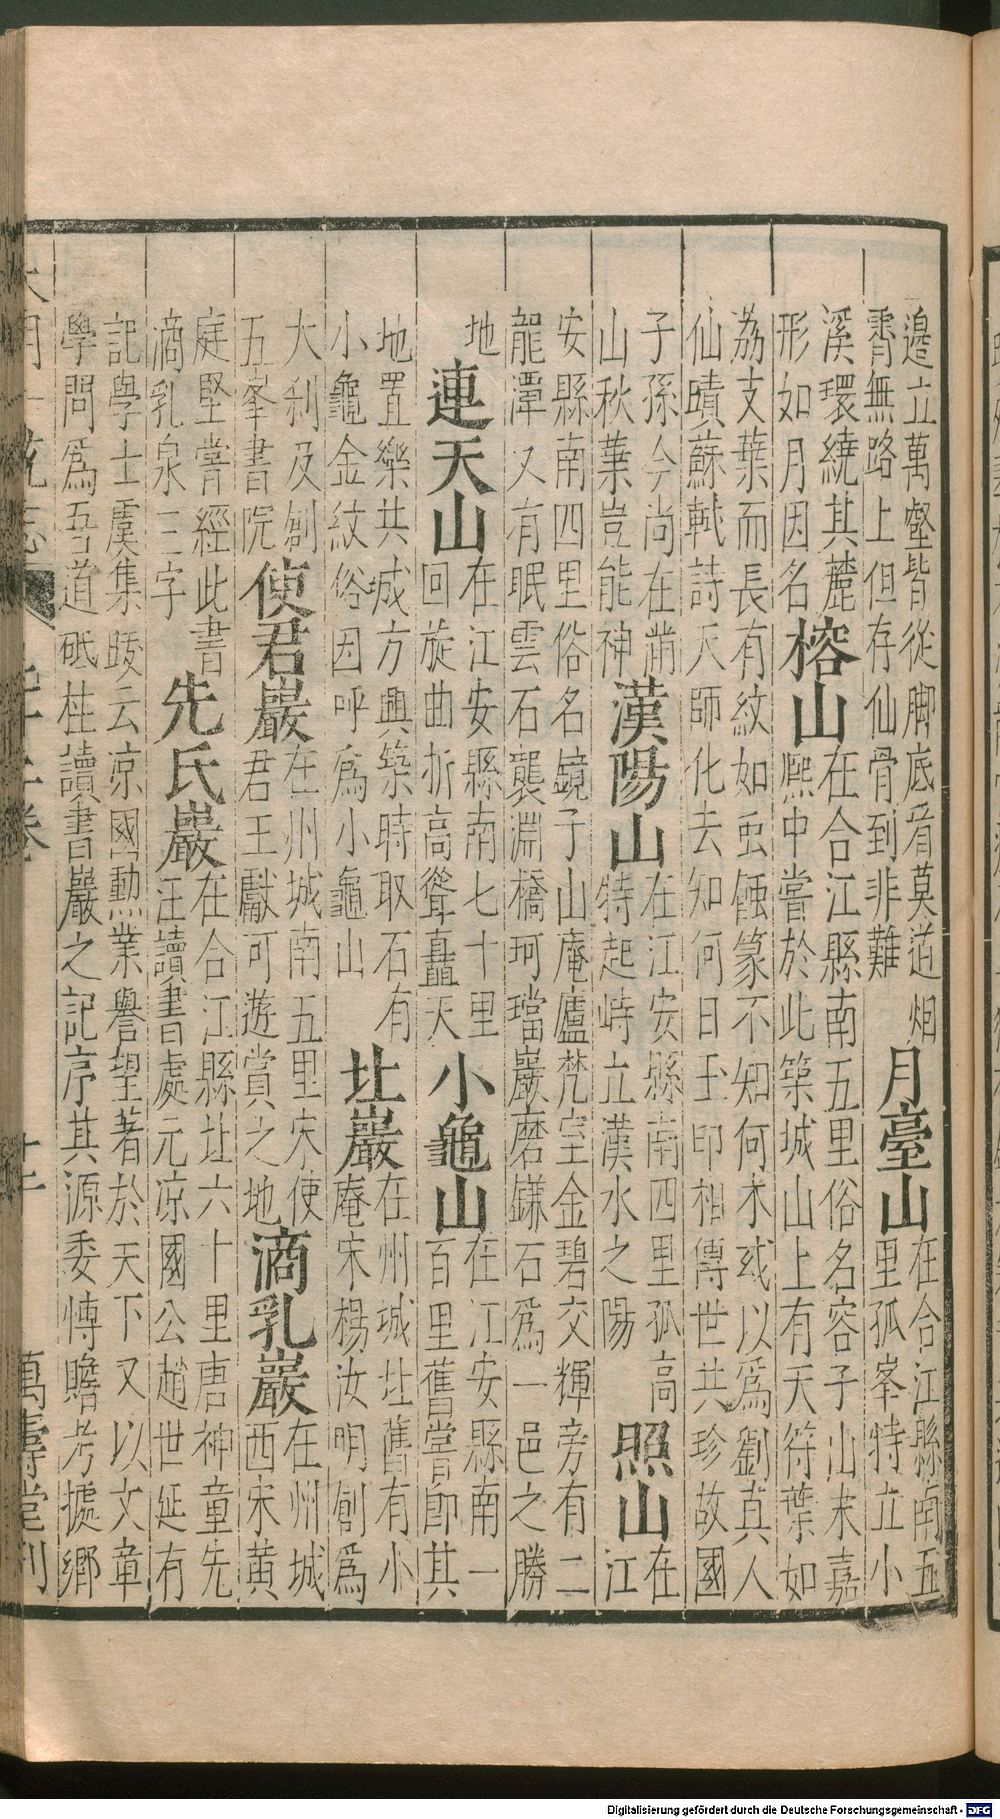 邉立萬壑皆從脚底看莫道烟
霄無路上但存仙骨到非難
月臺山
在合江縣南五
里孤峯特立小
溪環繞其麓
形如月因名
榕山
在合江縣南五里俗名容子山末嘉
熈中嘗於此築城山上有天符葉如
荔支葉而長有紋如虫蝕篆不知何木或以為劉真人
仙蹟蘇軾詩天師化去知何日玉印相傳世共珍故國
子孫今尚在滿
山秋葉豈能神
漢陽山
在江安縣南四里孤高
特起峙立漢水之陽
照山
在
江
安縣南四里俗名鏡子山庵廬梵室金碧交輝旁有二
龍潭又有眠雲石龔淵橋珂璫巖磨鐮石為一邑之勝
地
連天山
在江安縣南七十里
回旋曲折高聳矗天
小龜山
在江安縣南一
百里舊嘗即其
地置樂共城方興築時取石有
小龜金紋俗因呼為小龜山
北巖
在州城北舊有小
庵宋楊汝明創為
大刹及創
五峯書院
使君巖
在州城南五里宋使
君王獻可遊賞之地
滴乳巖
在州城
西宋黄
庭堅嘗經此書
滴乳泉三字
先氏巖
在合江縣北六十里唐神童先
汪讀書處元凉國公趙世延有
記學士虞集跋云凉國勳業譽望著於天下又以文章
學問為吾道砥柱讀書巖之記序其源委愽贍考據鄉
大明一統志
卷
萬壽堂刊
Digitalisierung gefördert durch die Deutsche Forschungsgemeinschaft - DFG